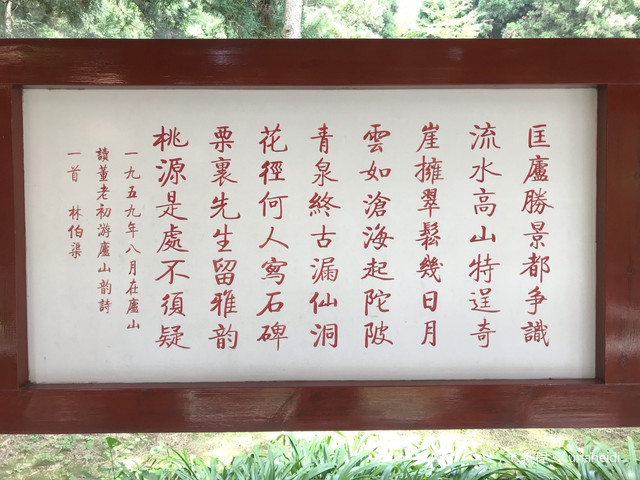 匡廬勝景都爭識
流水高山特逞奇
崖擁翠鬆幾日月
雲如滄海起陀陂
青泉終古漏仙洞
花徑何人寫石碑
栗裏先生留雅韵
桃源是處不須疑
一九五九年八月在廬山
讀董老初游廬山韵詩
一首 林伯渠